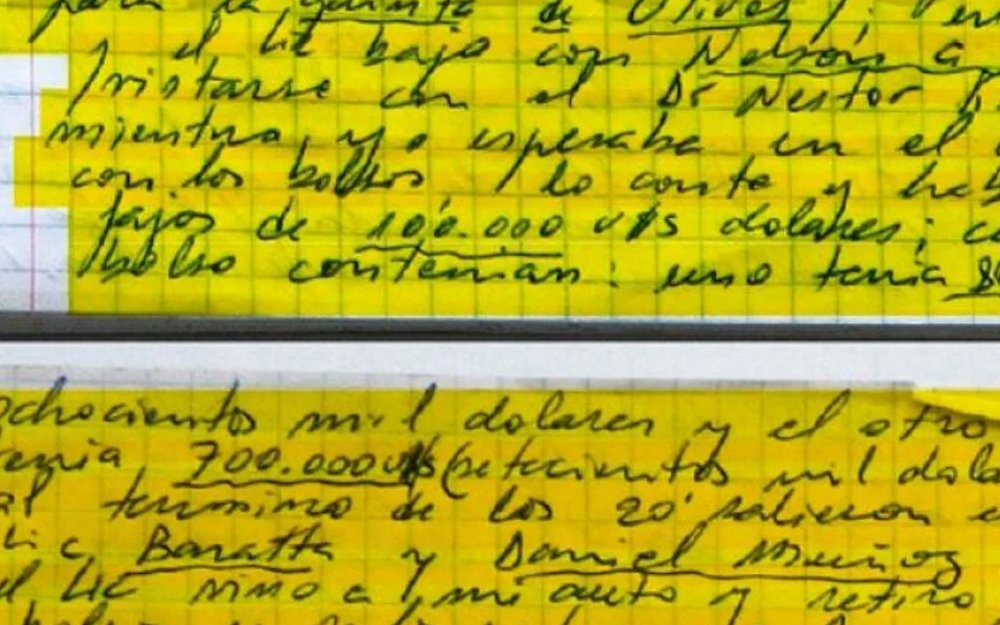 para la quinta de Olivos
y el Lic bajo con Nelson a
entrevistarse con el Dr Nestor
mientras yo esperaba en el
con los bolsos, lo conte y
fajos de 100.000 u$s dolares; c
bolso contenian: uno tenia 8
ochocientos mil dolares y el otro
tenia 700.000 u$s (setecientos mil dola
al termino de los 20' salieron e
Lic Baratta y Daniel Muñoz
el Lic vino a mi auto y retiro